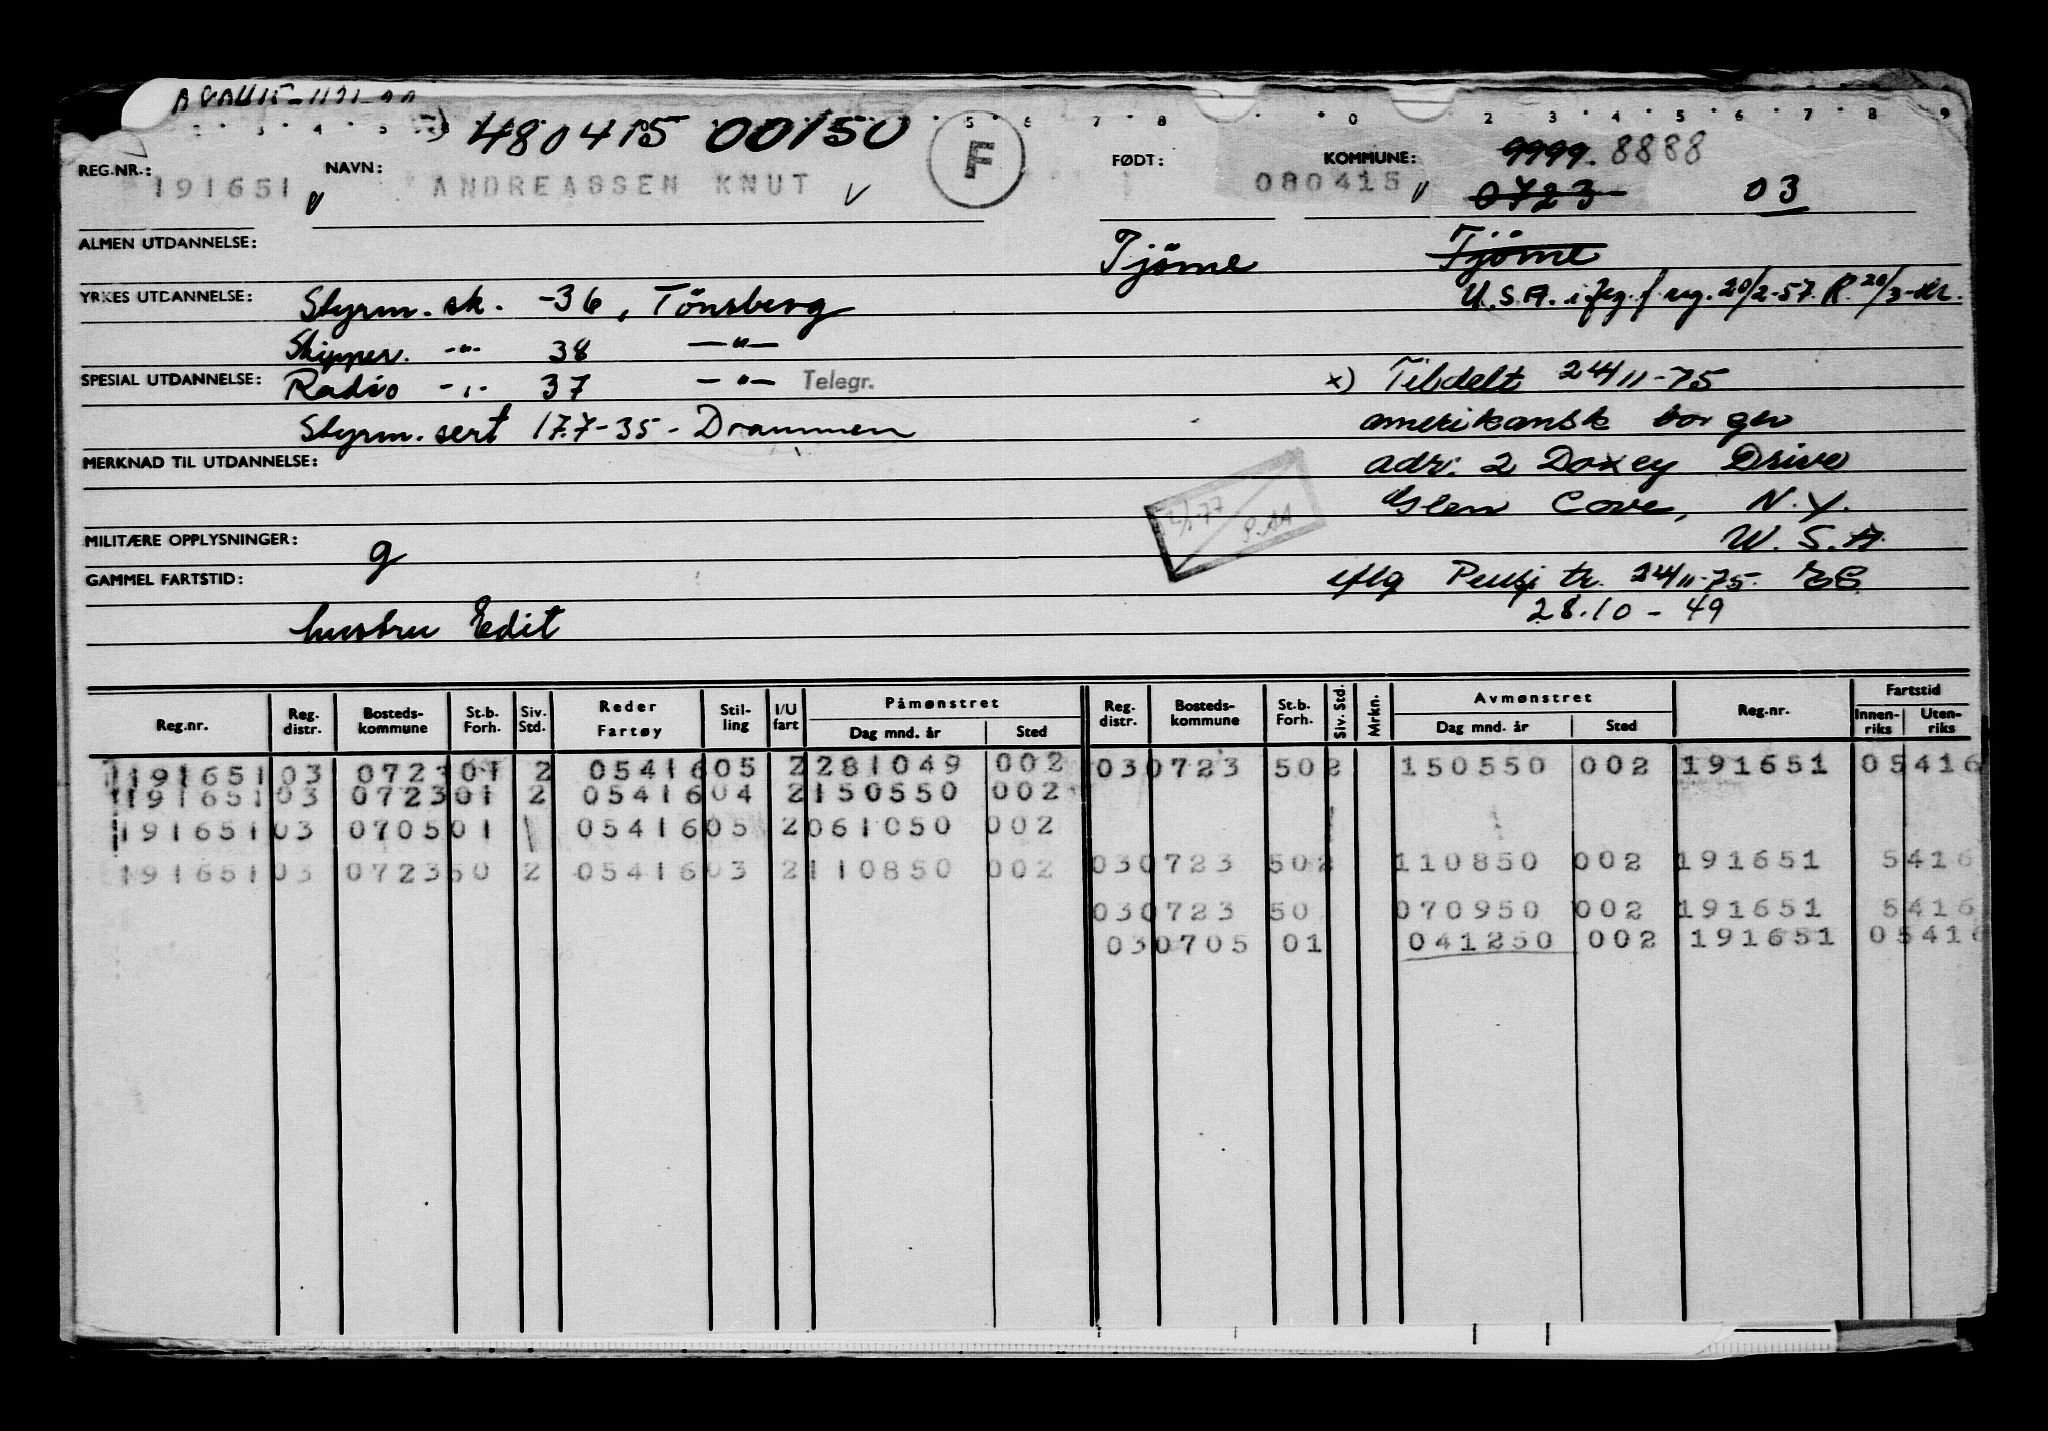 480415 00150 F
REG.NR.: NAVN: FØDT: KOMMUNE: 9999. 8888
191651 ANDREASSEN KNUT 080415 0723 03
ALMEN UTDANNELSE: Tjöme Tjöme
YRKES UTDANNELSE: Styrm. sk. -36, Tönsberg U.S.A. i flg. f. reg. 20/2-57. R. 20/3-
Skipper. -"- 38 -"-
SPESIAL UTDANNELSE: Radio -"- 37 -"- Telegr. x) Tildelt 24/11-75
Styrm. sert 17.7-35 - Drammen amerikansk borger
MERKNAD TIL UTDANNELSE: adr. 2 Doxey Drive
Glen Cove, N.Y.
MILITÆRE OPPLYSNINGER: g U.S.A.
GAMMEL FARTSTID: iflg Pensj tr. 24/11-75.
28.10-49
hustru Edit
Reg.nr. Reg. distr. Bosteds-kommune St.b. Forh. Siv. Std. Reder Fartøy Stil-ling I/U fart Påmønstret Dag mnd. år Sted Reg. distr. Bosteds-kommune St.b. Forh. Siv. Std. Mrkn. Avmønstret Dag mnd. år Sted Reg.nr. Fartstid Innen-riks Uten-riks
191651 03 0723 01 2 05416 05 2 281049 002 03 0723 50 2 150550 002 191651 05416
191651 03 0723 01 2 05416 04 2 150550 002
191651 03 0705 01 05416 05 2 061050 002
191651 03 0723 50 2 05416 03 2 110850 002 03 0723 50 2 110850 002 191651 5416
03 0723 50 070950 002 191651 5416
03 0705 01 041250 002 191651 05416